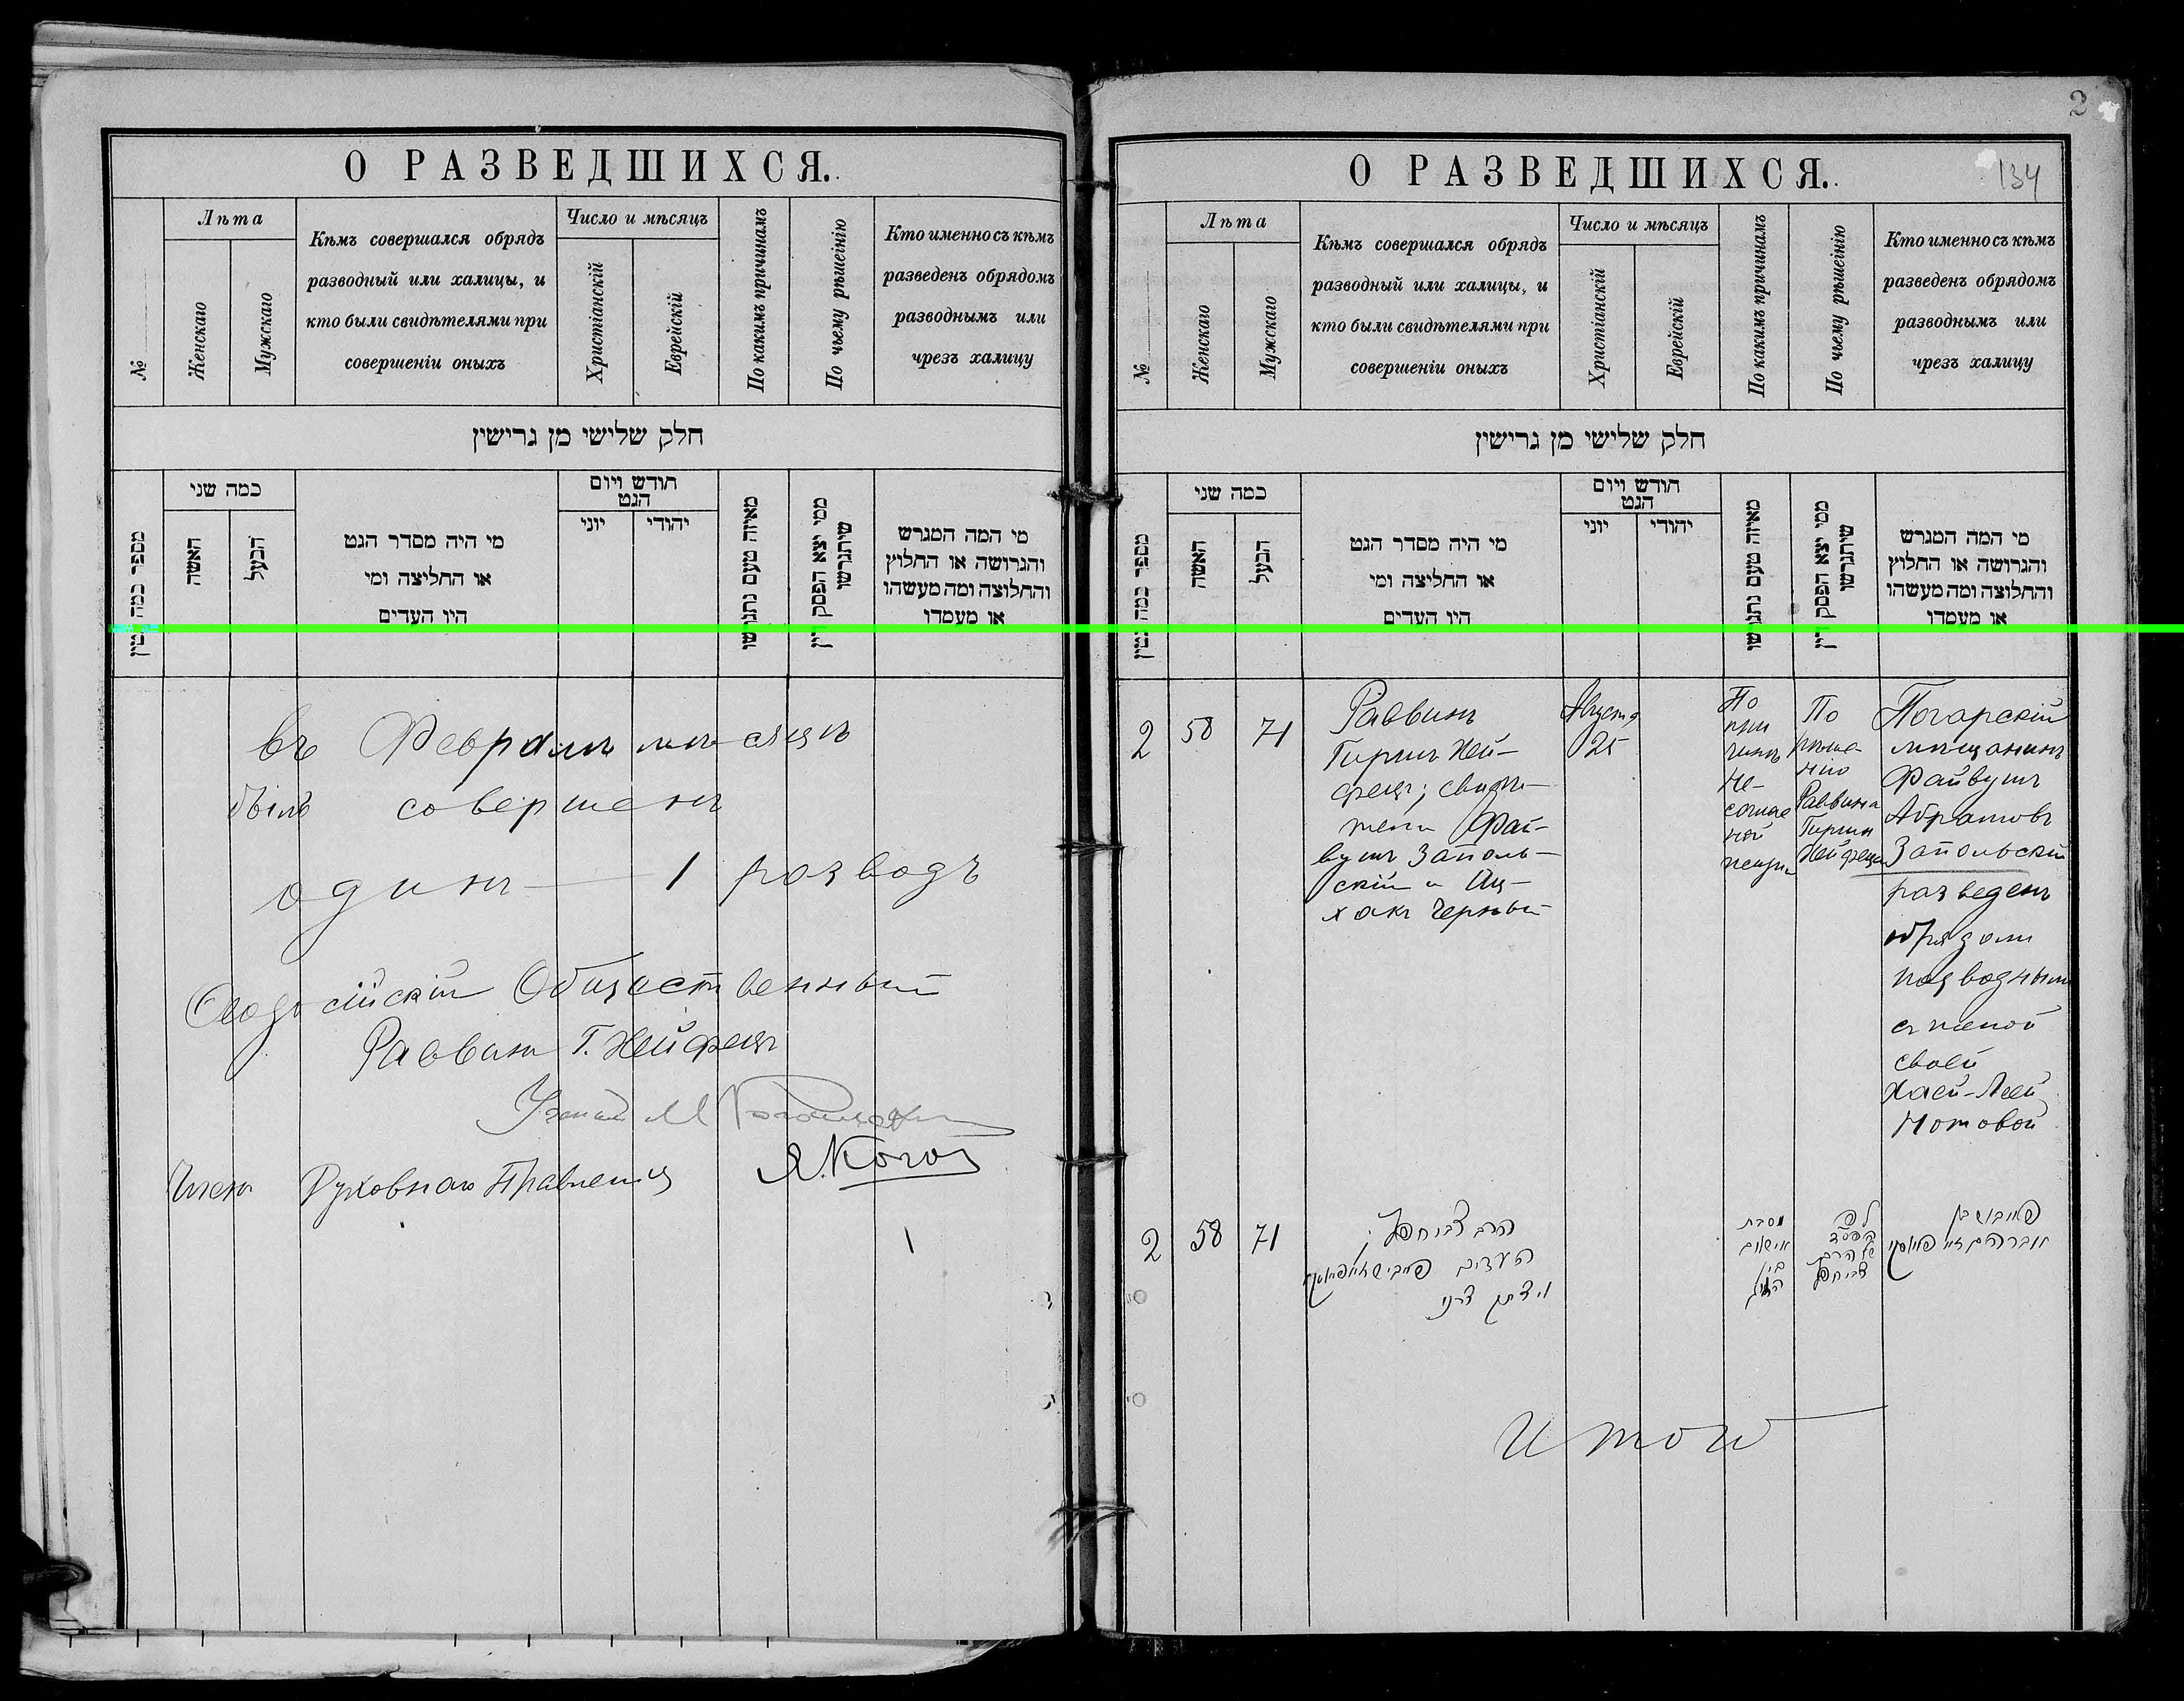 О РАЗВЕДШИХСЯ.
№
Лѣта
Женскаго
Мужскаго
Кѣмъ совершался обрядъ
разводный или халицы, и
кто были свидѣтелями при
совершеніи оныхъ
Число и мѣсяцъ
Христіанскій
Еврейскій
По какимъ причинамъ
По чьему рѣшеінію
Кто именно съ кѣмъ
разведенъ обрядомъ
разводнымъ или
чрезъ халицу
חלק שלישי מן גרישין
מספר כמה
כמה שני
האשה
הבעל
מי היה מסדר הגט
או החליצה ומי
היו העדים
חודש ויום
הגט
יוני
יהודי
מאיזה טעם נתגרשו
ממי יצא הפסק דין
שיתגרשו
מי המה המגרש
והגרושה או החלוץ
והחלוצה ומה מעשהו
או מעמדו
въ Февралѣ мѣсяцѣ
былъ совершенъ
одинъ — 1 разводъ
Ѳеодосійскій Общественный
Раввинъ Г. Хейфецъ
Членъ Духовнаго Правленія
1
2
134
О РАЗВЕДШИХСЯ.
№
Лѣта
Женскаго
Мужскаго
Кѣмъ совершался обрядъ
разводный или халицы, и
кто были свидѣтелями при
совершеніи оныхъ
Число и мѣсяцъ
Христіанскій
Еврейскій
По какимъ причинамъ
По чьему рѣшеінію
Кто именно съ кѣмъ
разведенъ обрядомъ
разводнымъ или
чрезъ халицу
חלק שלישי מן גרישין
מספר כמה
כמה שני
האשה
הבעל
מי היה מסדר הגט
או החליצה ומי
היו העדים
חודש ויום
הגט
יוני
יהודי
מאיזה טעם נתגרשו
ממי יצא הפסק דין
שיתגרשו
מי המה המגרש
והגרושה או החלוץ
והחלוצה ומה מעשהו
או מעמדו
2
58
71
Раввинъ
Гиршъ Хей-
фецъ; свидѣ-
тели Фай-
вушъ Заполь-
скій и Иц-
хакъ Черный
Августа
25
По
при
чинѣ
не-
соглас
ной
жизни
По
рѣше
нію
Раввина
Гирша
Хейфеца
Погарскій
мѣщанинъ
Файвушъ
Абрамовъ
Запольскій
разведенъ
обрядомъ
разводнымъ
съ женой
своей
Хаей-Леей
Нотовой
2
58
71
הרב צבי חפץ
העדים
מסבת
בין
של הרב
צבי חפץ
פייבוש בן
Итого